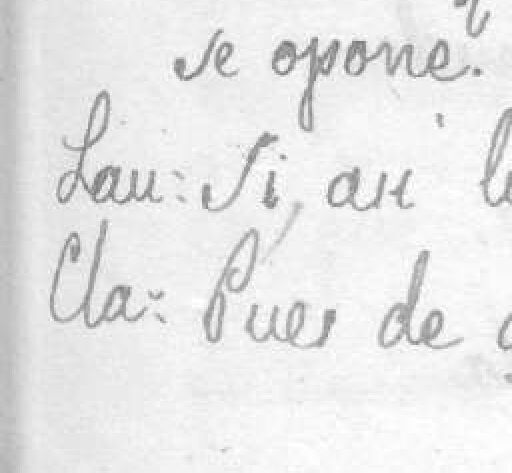 se opone.
Lau: Si, asi
Cla: Pues de